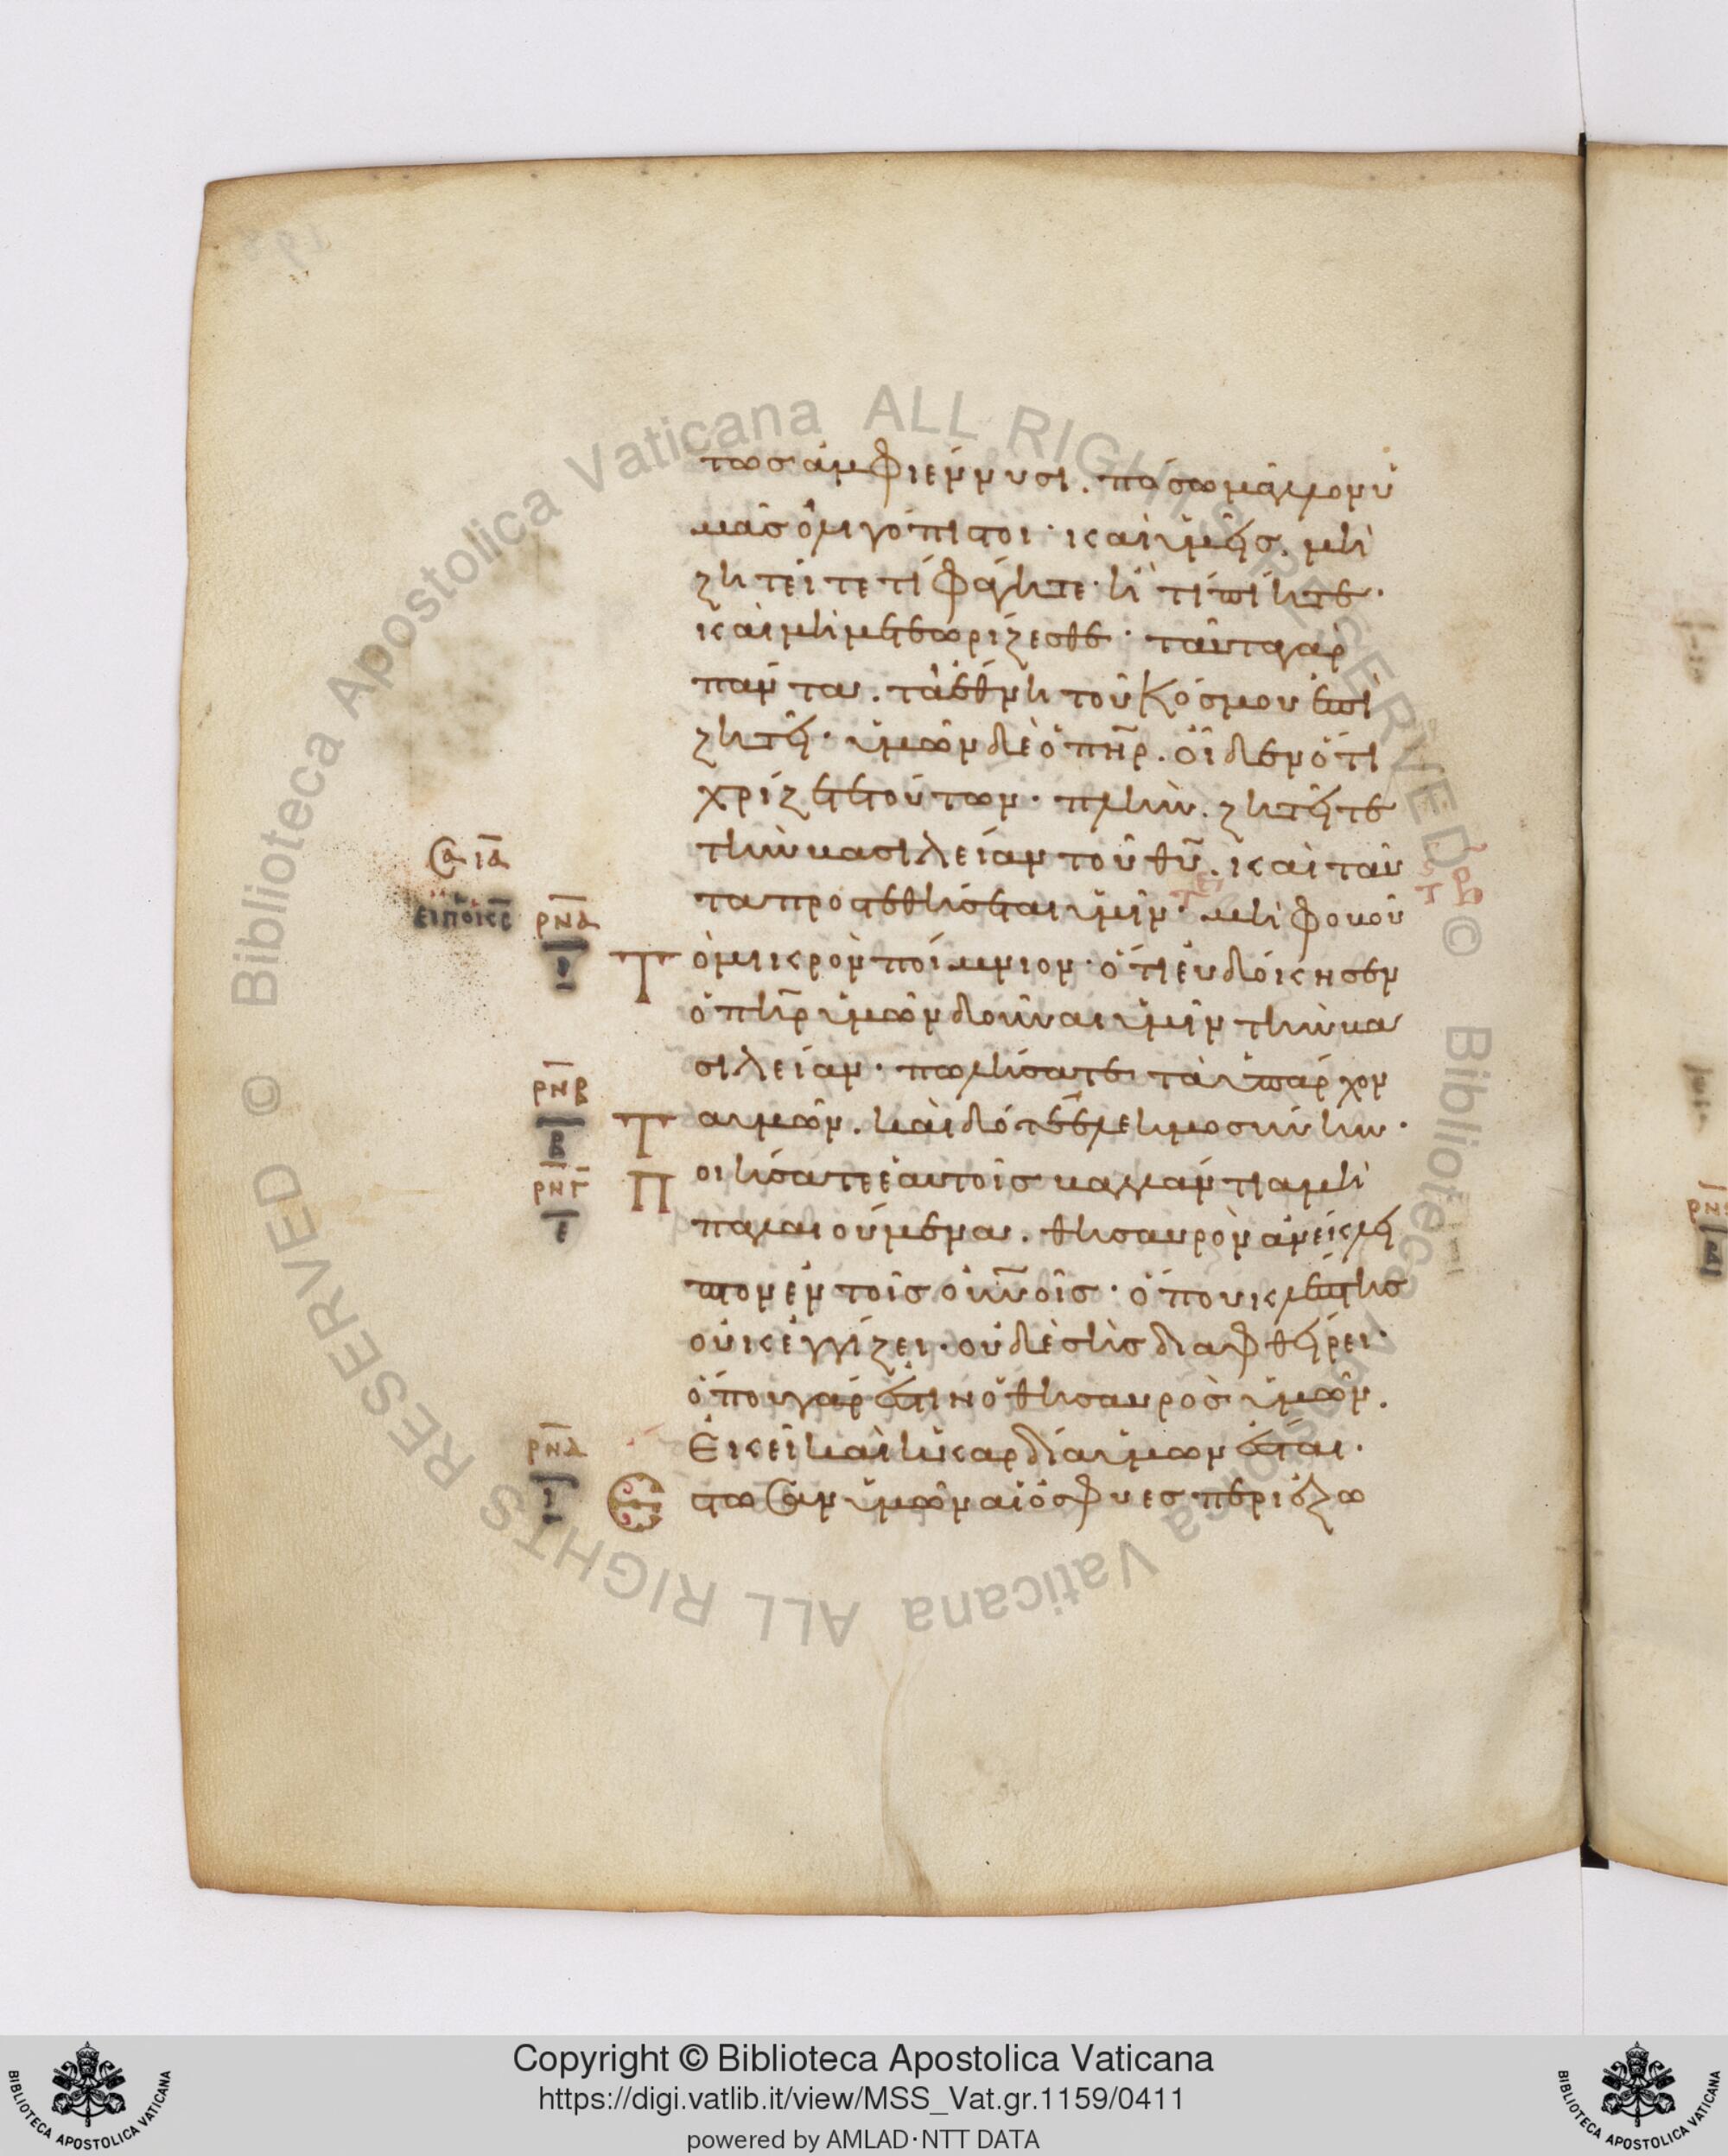 τως ἀμφιέννυσι. πόσω μᾶλλον ὑ
μᾶς ὀλιγόπιστοι· καὶ ὑμεῖς. μὴ
ζητεῖτε τί φάγητε· ἢ τί πίητε·
καὶ μὴ μετεωρίζεσθε· ταῦτα γὰρ
πάντα. τὰ ἔθνη τοῦ κόσμου ἐπι
ζητεῖ· ὑμῶν δὲ ὁ πη̅ρ. οἶδεν ὅτι
χρίζετε τούτων· πλὴν. ζητεῖτε
τὴν βασιλείαν τοῦ θυ̅. καὶ ταῦ
τα προστεθήσεται ὑμῖν· μὴ φοβοῦ
Τὸ μικρὸν ποίμνιον· ὅτι εὐδόκησεν
ὁ πη̅ρ ὑμῶν δοῦναι ὑμῖν τὴν βα
σιλείαν· πωλήσατε τὰ ὑπάρχον
Τα ὑμῶν. καὶ δότε ἐλεημοσύνην·
Ποιήσατε ἑαυτοῖς βαλλάντια μὴ
παλαιούμενα. θησαυρὸν ἀνέκλει
πτον ἐν τοῖς οὐν̅οῖς· ὅπου κλέπτης
οὐκ ἐγγίζει· οὐδὲ σὴς διαφθείρει·
ὅπου γάρ ἐστιν ὁ θησαυρὸς ὑμῶν.
Ἐκεῖ καὶ ἡ καρδία ὑμῶν ἔσται.
Ἔστωσαν ὑμῶν αἱ ὀσφύες περιεζω
ρν̅α
ρν̅β
β
ρν̅γ
ε
ρν̅δ
ι
© Biblioteca Apostolica Vaticana ALL RIGHTS RESERVED
© Biblioteca Apostolica Vaticana ALL RIGHTS RESERVED
Copyright © Biblioteca Apostolica Vaticana
https://digi.vatlib.it/view/MSS_Vat.gr.1159/0411
powered by AMLAD·NTT DATA
BIBLIOTECA APOSTOLICA VATICANA
BIBLIOTECA APOSTOLICA VATICANA